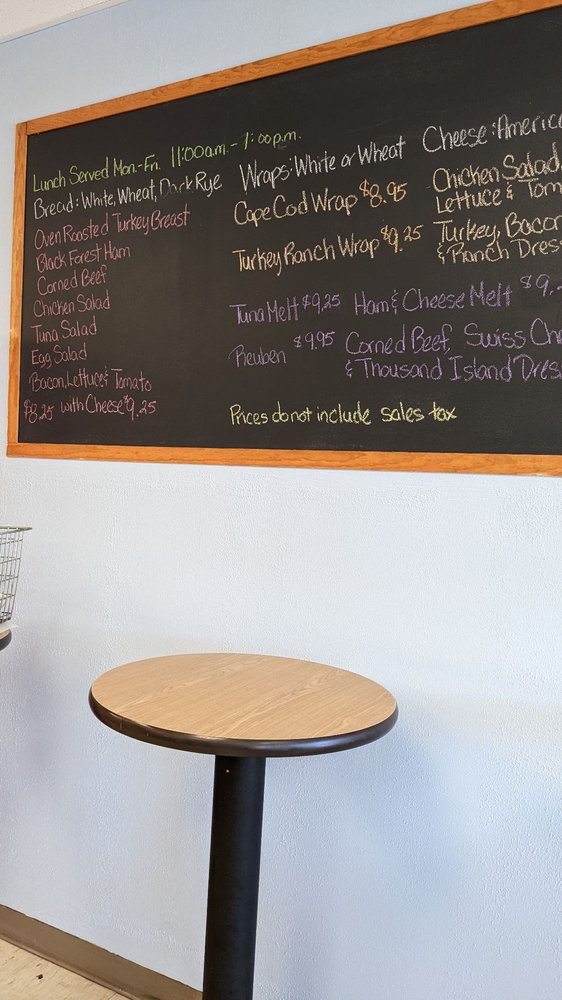 Lunch Served Mon.-Fri. 11:00a.m.-1:00p.m.
Bread: White, Wheat, Dark Rye
Oven Roasted Turkey Breast
Black Forest Ham
Corned Beef
Chicken Salad
Tuna Salad
Egg Salad
Bacon, Lettuce & Tomato
$8.25 with Cheese $9.25
Wraps: White or Wheat
Cheese: America
Cape Cod Wrap $8.95
Chicken Salad,
Lettuce & Tom
Turkey Ranch Wrap $9.25
Turkey, Bacon
& Ranch Dres
Tuna Melt $9.25 Ham & Cheese Melt $9.2
Reuben $9.95 Corned Beef, Swiss Che
& Thousand Island Dres
Prices do not include sales tax